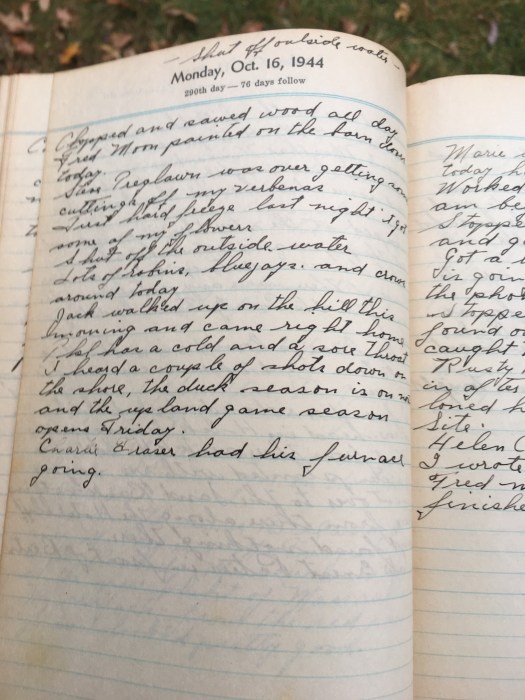 - shut off outside water -
Monday, Oct. 16, 1944
290th day — 76 days follow
Chopped and sawed wood all day
Fred Moon painted on the barn doors
today.
was over getting some
cuttings off my verbenas
First hard freeze last night. it got
some of my flowers
Shut off the outside water
Lots of robins, bluejays. and crows
around today
Jack walked up on the hill this
morning and came right home
has a cold and a sore throat
I heard a couple of shots down on
the shore, the duck season is on now
and the upland game season
opens Friday.
Charlie Fraser had his furnace
going.
Marie
today
Worked
am
Stoppe
and
Got a
is goin
the
stoppe
found
caught
Rusty
in
loned
site.
Helen
I wrote
Fred
finishe